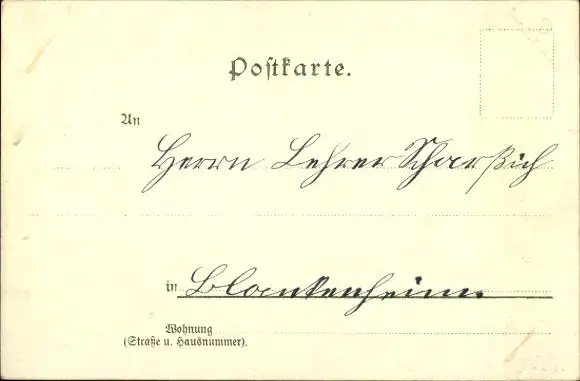 Postkarte.
An
Herrn Lehrer Scharßich
in Blankenheim.
Wohnung
(Straße u. Hausnummer).